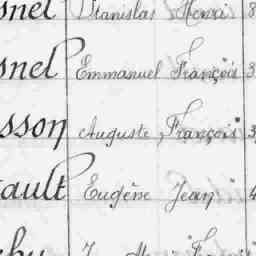 snel Stanislas Henri 8
snel Emmanuel François 3
sson Auguste, François 3
ault Eugène Jean 4